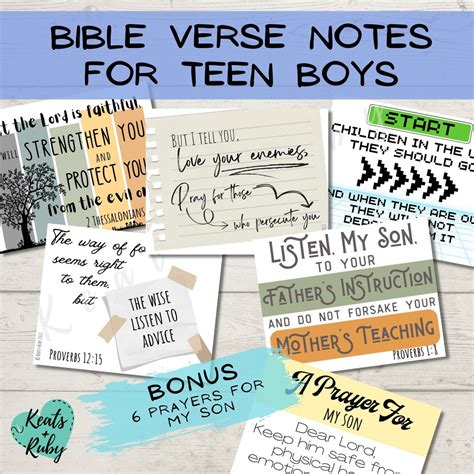 BIBLE VERSE NOTES
FOR TEEN BOYS
t the Lord is faithful,
WILL
STRENGTHEN YOU
AND
PROTECT YOU
from the evil on
2 THESSALONIANS
BUT I TELL YOU,
Love your enemies,
Pray for those
who persecute you
START
CHILDREN IN THE
THEY SHOULD GO
AND WHEN THEY ARE O
THEY WILL NOT
DEPA
The way of fo
seems right
to them,
but
THE WISE
LISTEN TO
ADVICE
PROVERBS 12:15
LISTEN, MY SON,
TO YOUR
FATHER'S INSTRUCTION
AND DO NOT FORSAKE YOUR
MOTHER'S TEACHING
PROVERBS 1:8
BONUS
6 PRAYERS FOR
MY SON
A Prayer For
MY SON
Dear Lord,
Keep him safe fro
physical
emotion
Keats
+
Ruby